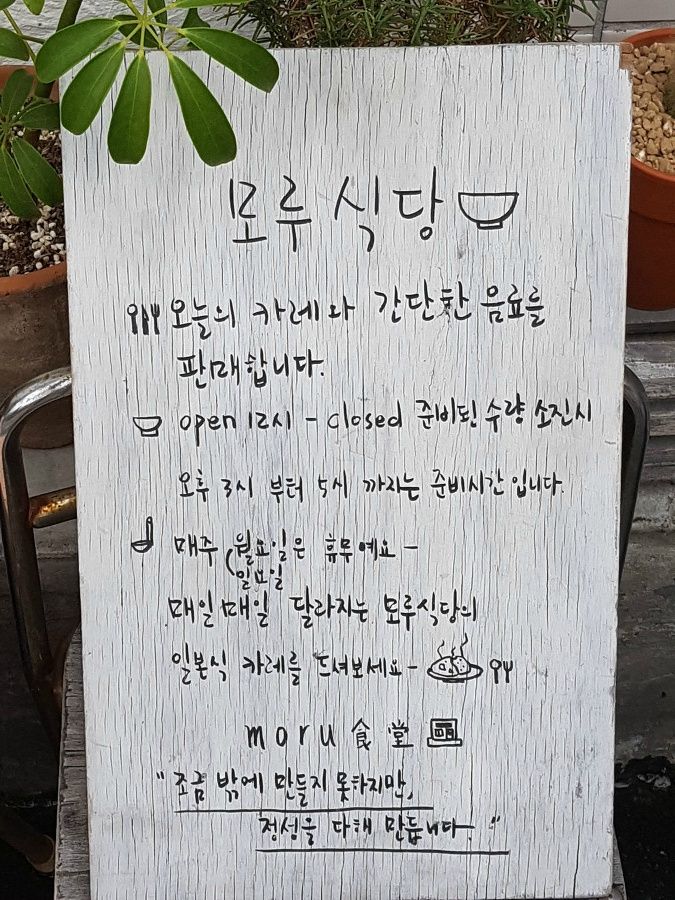 모루식당
오늘의 카레와 간단한 음료를
판매합니다.
open 12시 - closed 준비된 수량 소진시
오후 3시 부터 5시 까지는 준비시간입니다.
매주 월요일은 휴무예요 -
일요일
매일매일 달라지는 모루식당의
일본식 카레를 드셔보세요 -
moru 食堂
"조금 밖에 만들지 못하지만,
정성을 다해 만듭니다."